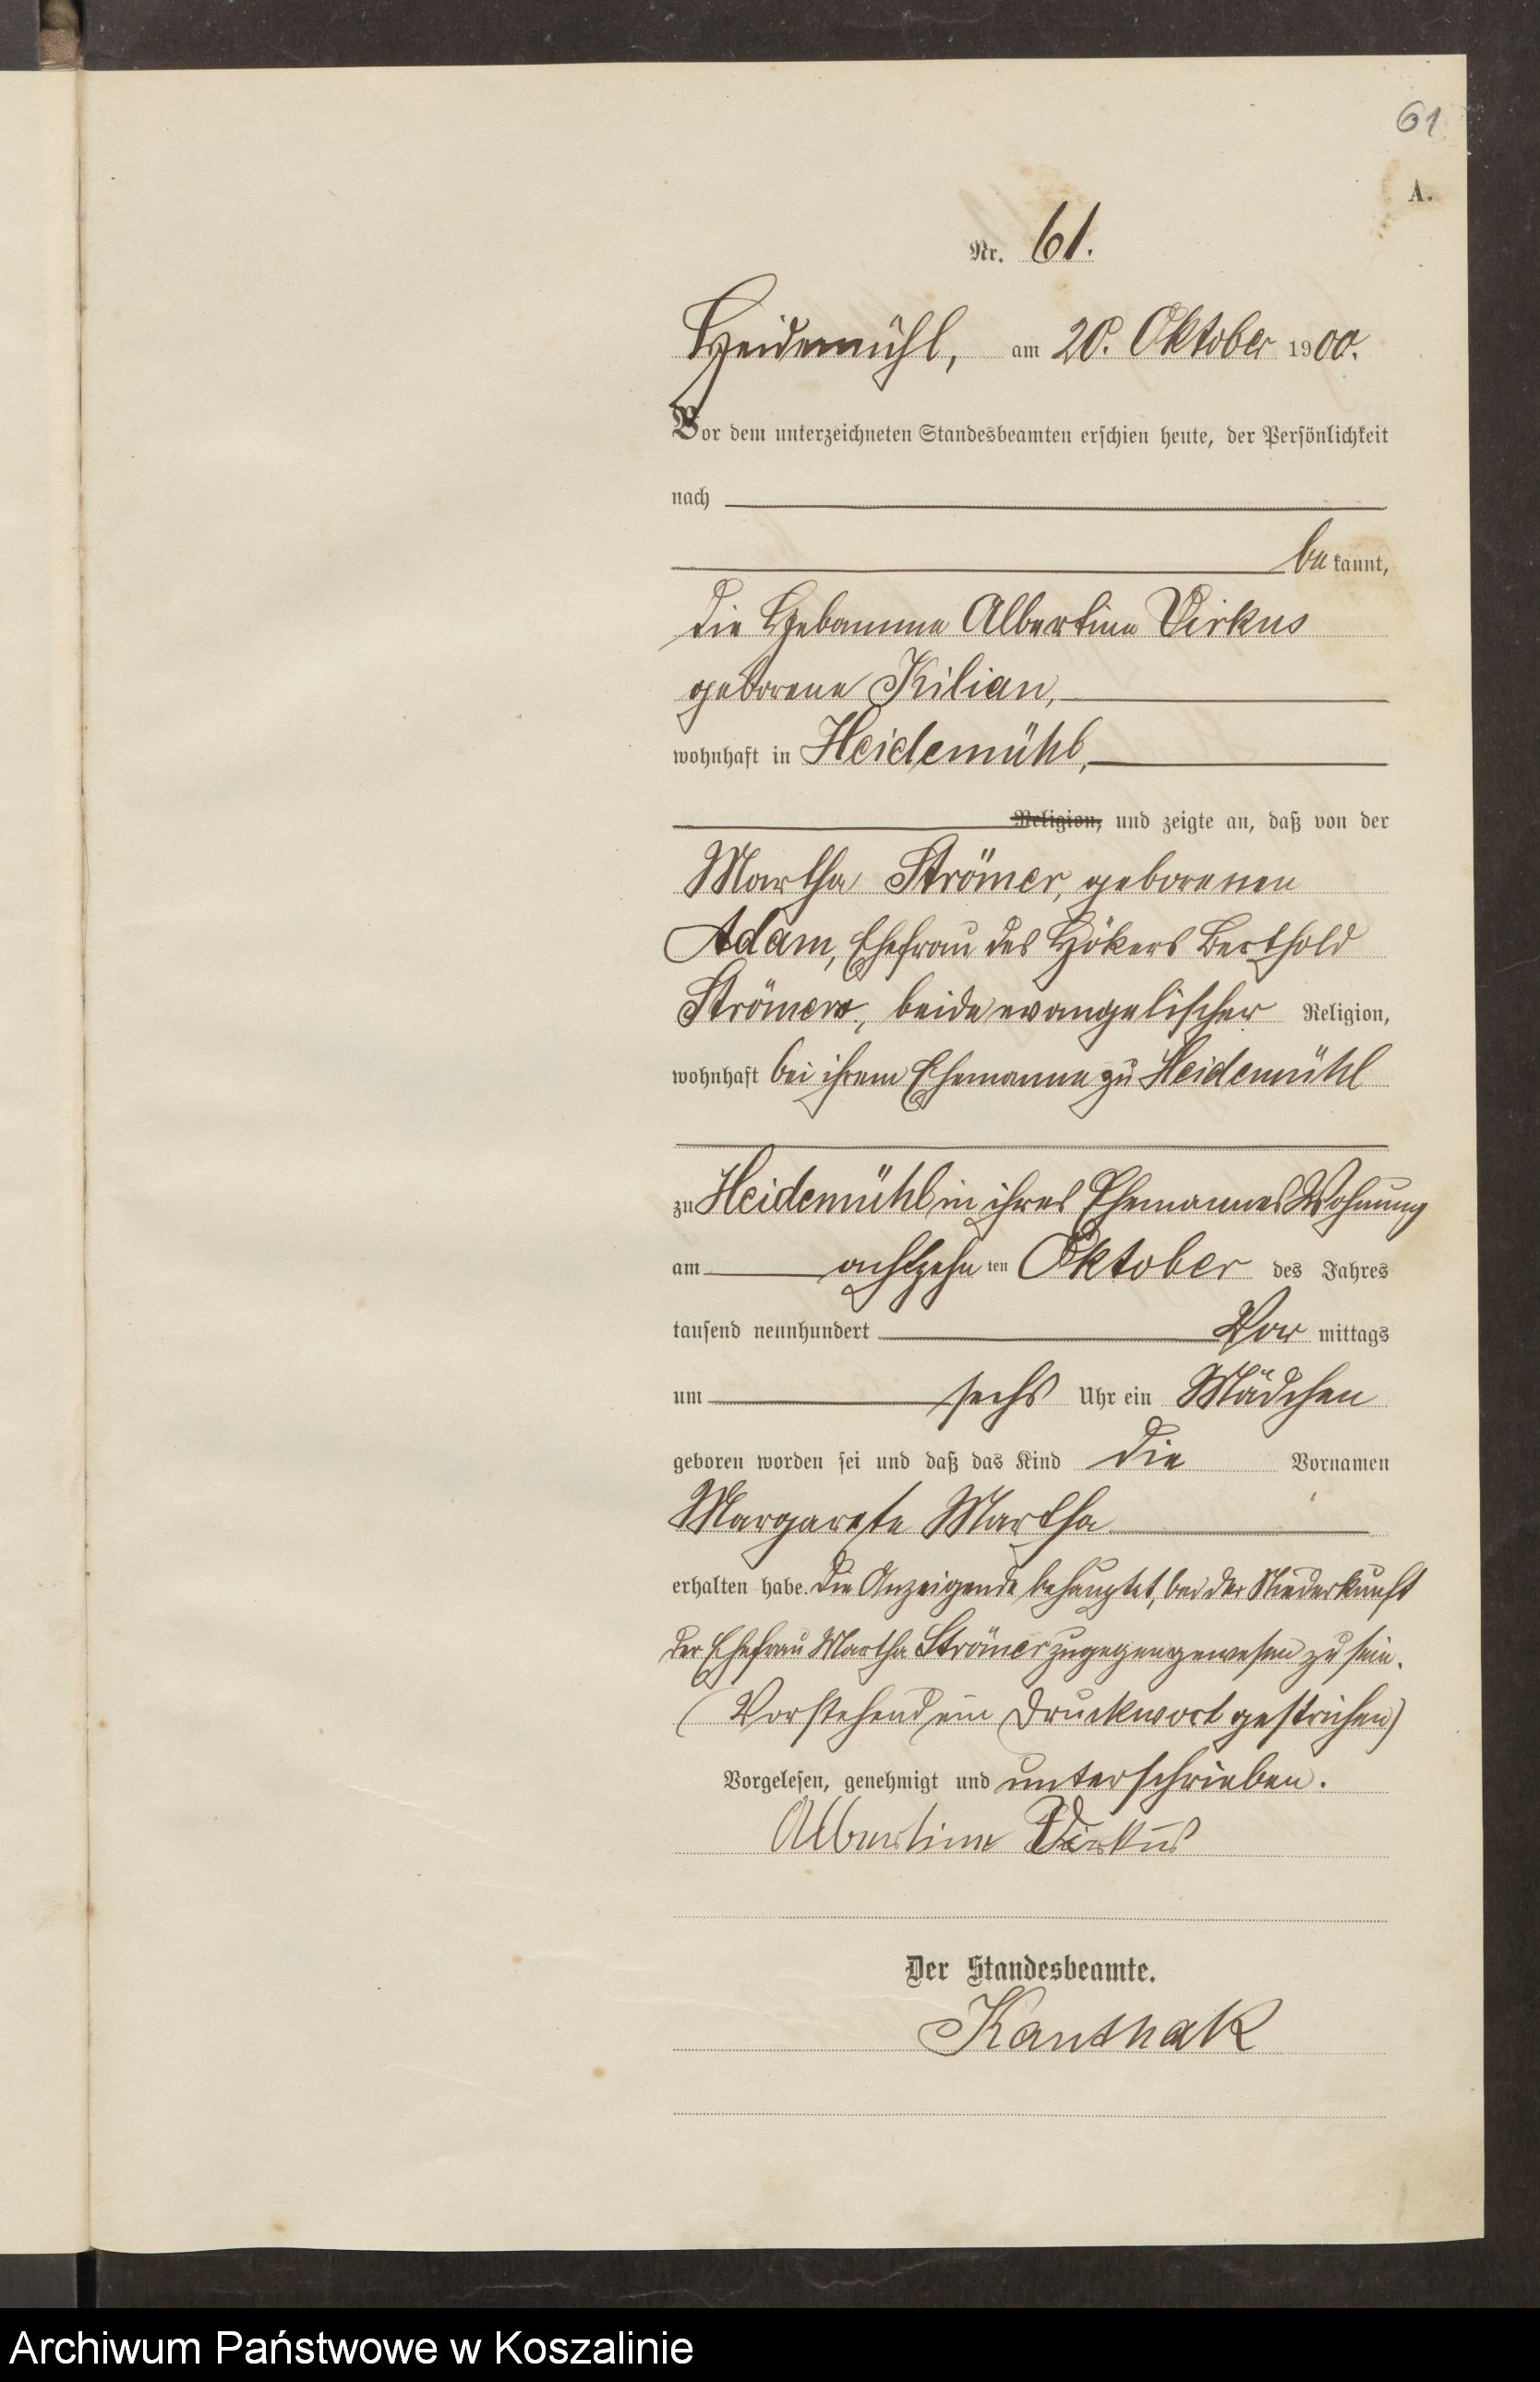 61
A.
Nr. 61.
Heidemühl, am 20. Oktober 1900.
Vor dem unterzeichneten Standesbeamten erschien heute, der Persönlichkeit
nach
be kannt,
die Hebamme Albertine Virkus
geborene Kilian,
wohnhaft in Heidemühl,
Religion, und zeigte an, daß von der
Martha Strömer, geborenen
Adam, Ehefrau des Hökers Berthold
Strömer, beide evangelischer Religion,
wohnhaft bei ihrem Ehemanne zu Heidemühl
zu Heidemühl in ihres Ehemannes Wohnung
am achtzehn ten Oktober des Jahres
tausend neunhundert Vor mittags
um sechs Uhr ein Mädchen
geboren worden sei und daß das Kind die Vornamen
Margarete Martha
erhalten habe. Die Anzeigende behauptet, bei der Niederkunft
der Ehefrau Martha Strömer zugegen gewesen zu sein.
(Vorstehend ein Druckwort gestrichen)
Vorgelesen, genehmigt und unterschrieben.
Albertine Virkus
Der Standesbeamte.
Kanthak
Archiwum Państwowe w Koszalinie